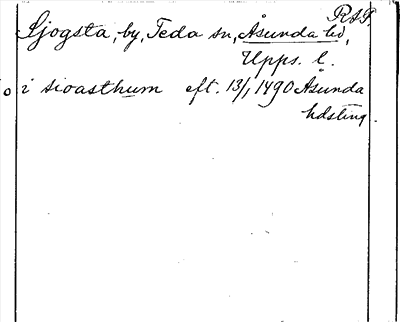 RAP.
Sjogsta, by, Teda sn, Åsunda hd,
Upps. l.
i sioasthum eft. 13/1 1490 Åsunda
hdsting.